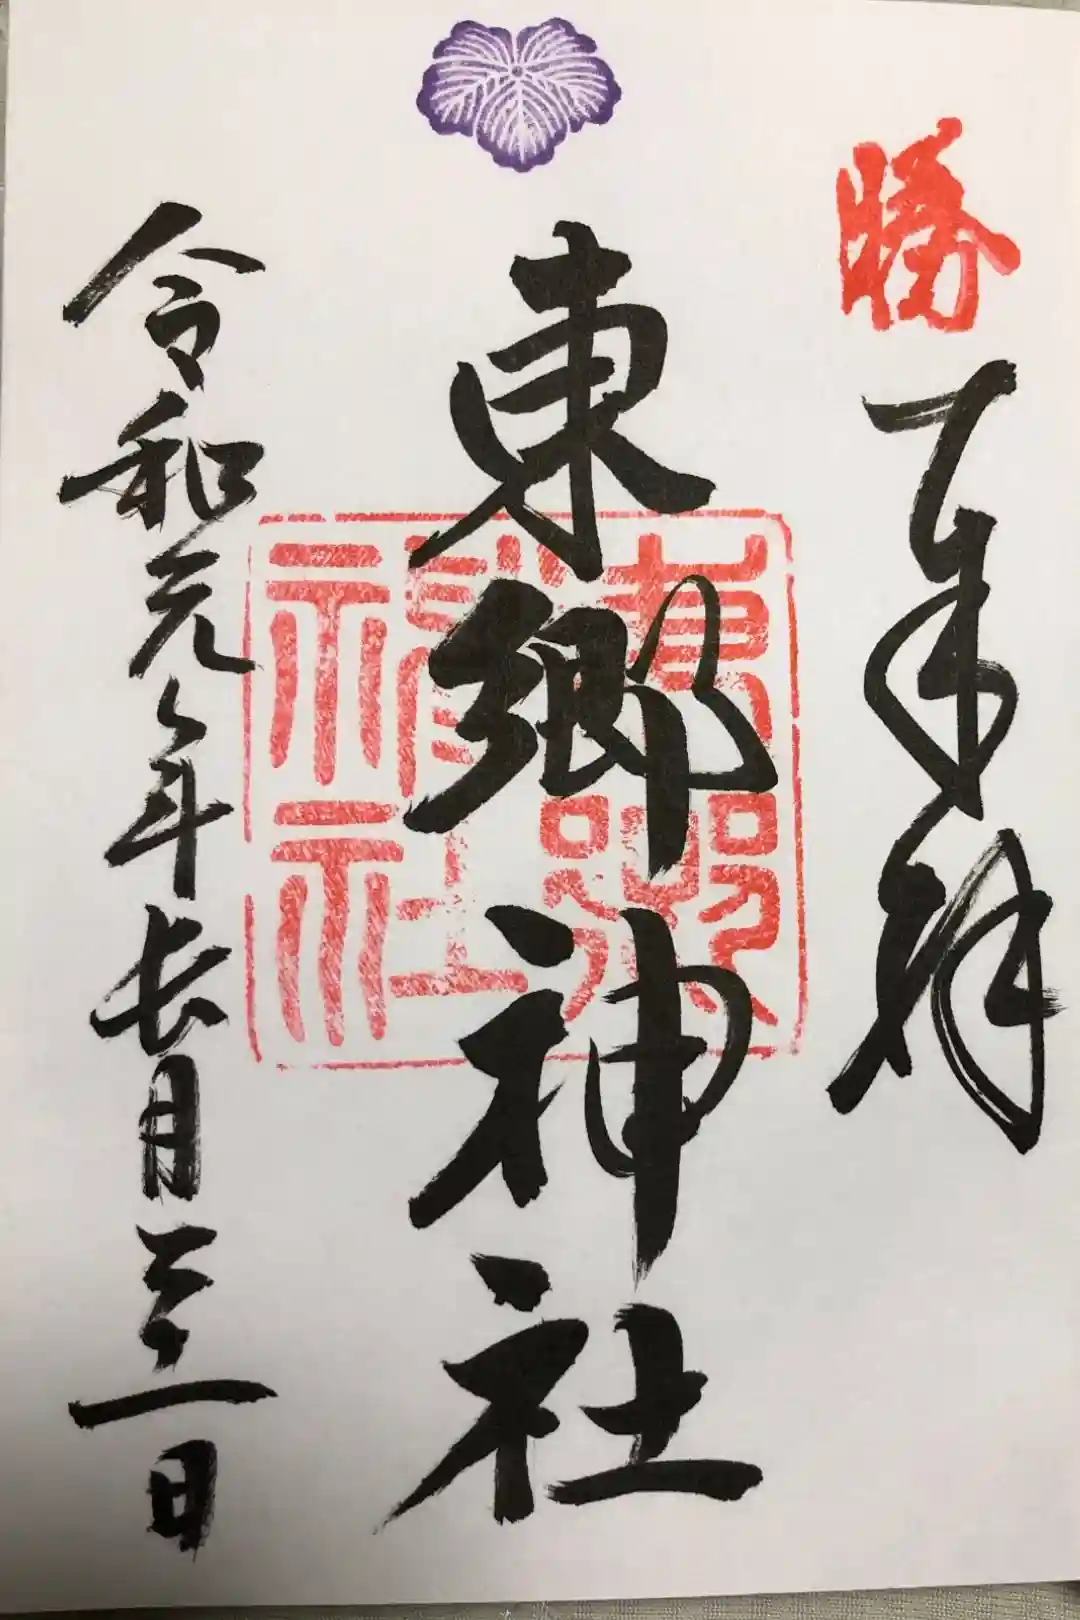 勝
奉拝
東郷神社
東郷神社
令和元年長月日